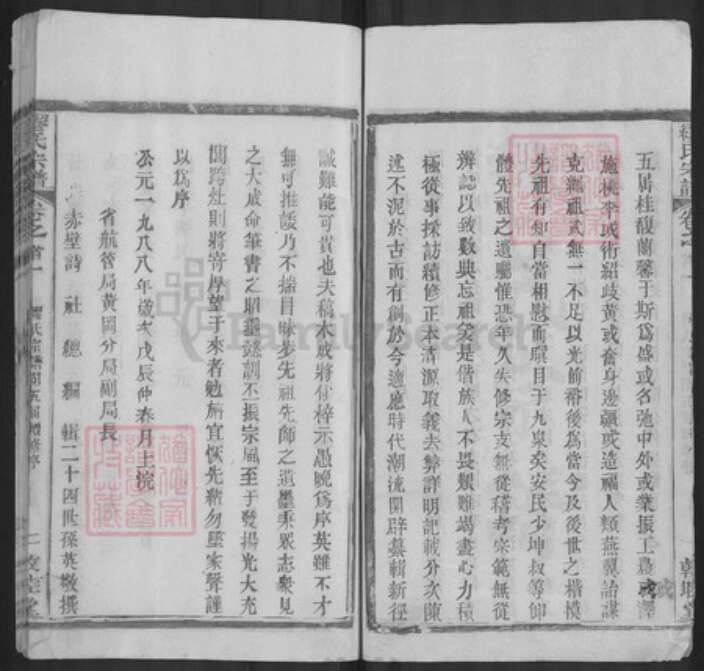 五屆桂馥蘭馨于斯為盛或名弛中外或業振工農或澤
施桃李或術紹歧黃或奮身邊疆或造福人類燕翼詒謀
克繩祖武無一不足以光前裕後為當今及後世之楷模
先祖有知自當相慰而瞑目于九泉矣安民少坤叔等仰
體先祖之遺囑惟恐年久失修宗支無從稽考宗範無從
辨認以致數典忘祖爰是偕族人不畏艱難竭盡心力積
極從事採訪續修正本清源取義去弊詳明記載分次陳
述不泥於古而有創於今適應時代潮流開辟纂輯新徑
誠難能可貴也夫稿本成將付梓示愚晚為序英雖不才
無可推諉乃不揣目昧步先祖先師之遺墨秉眾志衆見
之大成命筆書之昭垂謎訓丕振宗風至于發揚光大充
閭跨灶則將寄厚望于來者勉旃宜恢先緒勿墜家聲謹
以為序
公元一九八八年歲次戊辰仲春月上浣
省航管局黃岡分局副局長
赤壁詩社總編輯二十四世孫英敬撰
氏宗譜
卷之首一
氏宗譜
卷之
FamilySearch